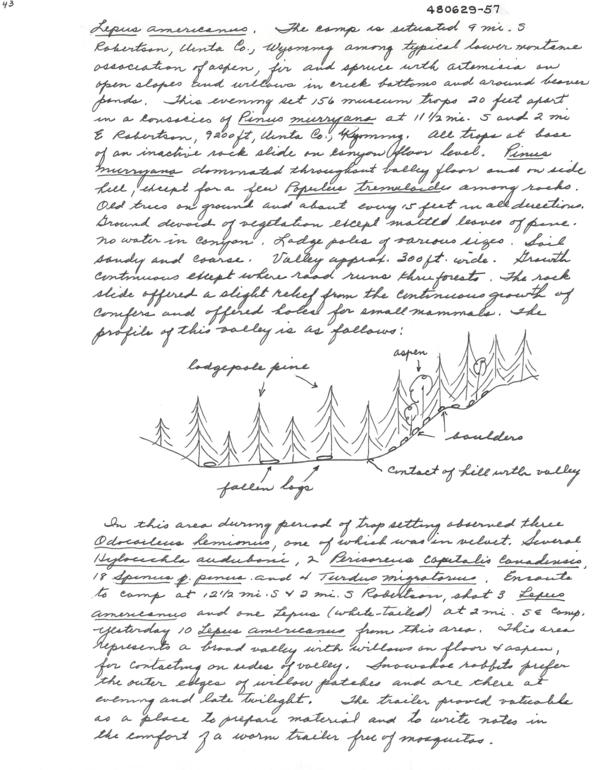 43
480629-57
Lepus americanus. The camp is situated 9 mi. S
Robertson, Uinta Co., Wyoming among typical lower montane
association of aspen, fir and spruce with artemisia on
open slopes and willows in creek bottoms and around beaver
ponds. This evening set 156 museum traps 20 feet apart
in a consocies of Pinus murryana at 11 1/2 mi. S and 2 mi
E Robertson, 9200 ft, Uinta Co., Wyoming. All traps at base
of an inactive rock slide on canyon floor level. Pinus
murryana dominated throughout valley floor and on side
hill, except for a few Populus tremuloides among rocks.
Old trees on ground and about every 15 feet in all directions.
Ground devoid of vegetation except matted leaves of pine.
No water in canyon. Lodge poles of various sizes. Soil
sandy and coarse. Valley approx. 300 ft. wide. Growth
continuous except where road runs thru forests. The rock
slide offered a slight relief from the continuous growth of
conifers and offered holes for small mammals. The
profile of this valley is as follows:
lodgepole pine
aspen
boulders
contact of hill with valley
fallen logs
In this area during period of trap setting observed three
Odocoileus hemionus, one of which was in velvet. Several
Hylocichla auduboni, 2 Perisoreus capitalis canadensis,
18 Spinus p. pinus and 4 Turdus migratorius. Enroute
to camp at 12 1/2 mi. S & 2 mi. S Robertson, shot 3 Lepus
americanus and one Lepus (white-tailed) at 2 mi. SE Camp.
Yesterday 10 Lepus americanus from this area. This area
represents a broad valley with willows on floor & aspen,
for contacting on sides of valley. Snowshoe rabbits prefer
the outer edges of willow patches and are there at
evening and late twilight. The trailer proved valuable
as a place to prepare material and to write notes in
the comfort of a warm trailer free of mosquitos.